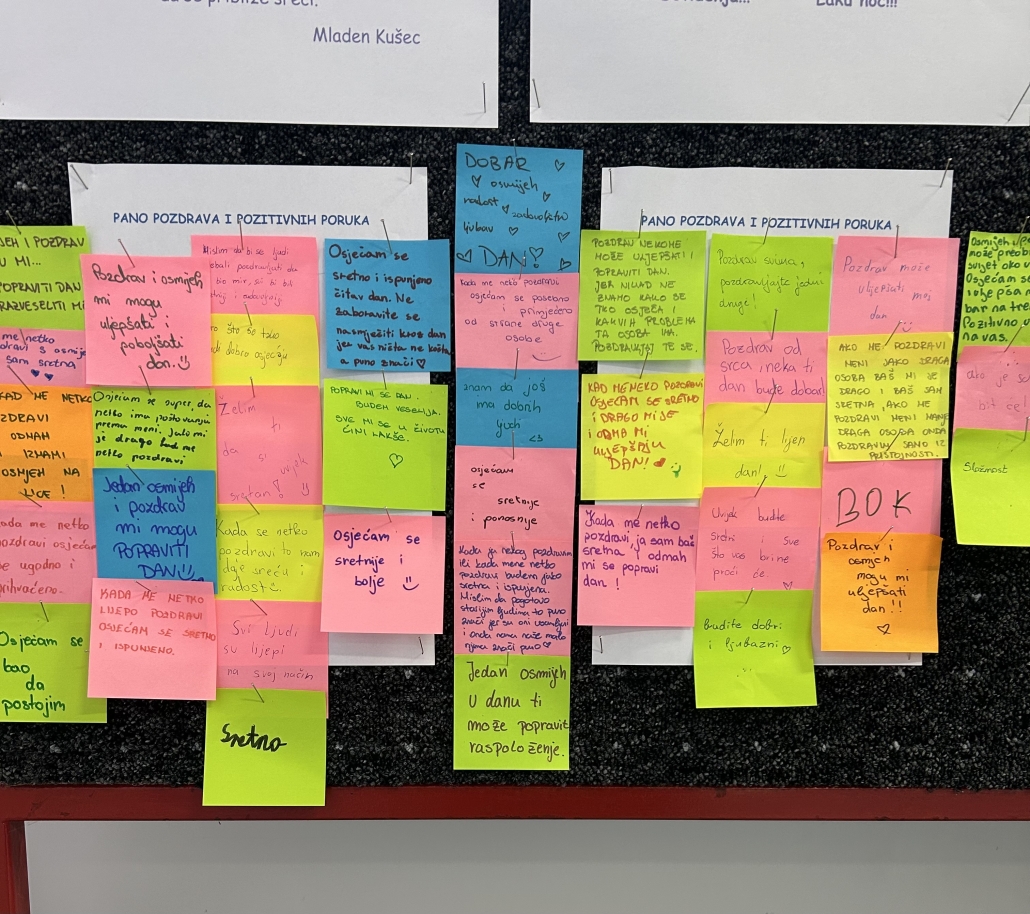 Mladen Kušec
Laku noć!!!
PANO POZDRAVA I POZITIVNIH PORUKA
PANO POZDRAVA I POZITIVNIH PORUKA
I POZDRAV
U MI...
POPRAVITI DAN
RAZVESELITI
me netko
sam sretna
NETKO
ODMAH
OSMJEH NA
LICE !
kada me netko
pozdravi osjećam
se ugodno i
prihvaćeno.
Osjećam se
kao
da
postojim
Pozdrav i osmijeh
mi mogu
uljepšati i
poboljšati
dan.
Osjećam se super, da
netko ima poštovanja
prema meni. Jako mi
je drago kad me
netko pozdravi
Jedan osmijeh
i pozdrav
mi mogu
POPRAVITI
DAN
KADA ME NETKO
LIJEPO POZDRAVI
OSJEĆAM SE SRETNO
I ISPUNJENO.
Mislim da bi se ljudi
trebali pozdravljati da
dobro osjećaju
Želim
ti
da si
uvijek
sretan!
Kada se netko
pozdravi to nam
daje sreću i
radost
Svi ljudi
su lijepi
na svoj način
Sretno
Osjećam se
sretno i ispunjeno
čitav dan. Ne
zaboravite se
nasmiješiti kroz dan
jer vas ništa ne košta
a puno znači
POPRAVI MI SE DAN.
BUDEM VESELIJA.
SVE MI SE U ŽIVOTU
ČINI LAKŠE.
Osjećam se
sretnije i
bolje
DOBAR
osmijeh
radost
zadovoljstvo
ljubav
DAN!
Kada me neko pozdravi
osjećam se posebno
i primjećeno
od strane druge
osobe
znam da još
ima dobrih
ljudi
<3
osjećam
se
sretnije
i ponosnije
Kada ja nekog pozdravim
ili kada mene netko
pozdravi budem jako
sretna i ispunjena.
Mislim da pogotovo
starijim ljudima to puno
znači jer su oni usamljeni
i onda nama naše malo
njima znači puno
Jedan osmijeh
U danu ti
može popraviti
raspoloženje.
POZDRAV NEKOME
MOŽE ULJEPŠATI I
POPRAVITI DAN.
JER NIKAD NE
ZNAMO KAKO SE
TKO OSJEĆA I
KAKVIH PROBLEMA
TA OSOBA IMA.
POZDRAVLJAJTE SE.
KAD ME NEKO POZDRAVI
OSJEĆAM SE SRETNO
I DRAGO MI JE
I ODMA MI
ULJEPŠAJU
DAN!
Kada me netko
pozdravi ja sam baš
sretna i odmah
mi se popravi
dan !
Pozdrav svima,
pozdravljajte jedni
druge!
Pozdrav od
srca, neka ti
dan bude dobar!
Želim ti lijep
dan!
Uvijek budite
sretni i sve
što vas brine
proći će.
budite dobri
i ljubazni
Pozdrav može
uljepšati moj
dan
AKO ME POZDRAVI
MENI JAKO DRAGA
OSOBA BAŠ MI JE
DRAGO I BAŠ SAM
SRETNA, AKO ME
POZDRAVI MENI MANJE
DRAGA OSOBA ONDA
POZDRAVIM SAMO IZ
PRISTOJNOSTI.
BOK
Pozdrav i
osmjeh
mogu mi
uljepšati
dan!!
Osmijeh
svijet oko
Osjećam se
bar na
Pozitivno
na vas.
ako je
bit će
Složnost